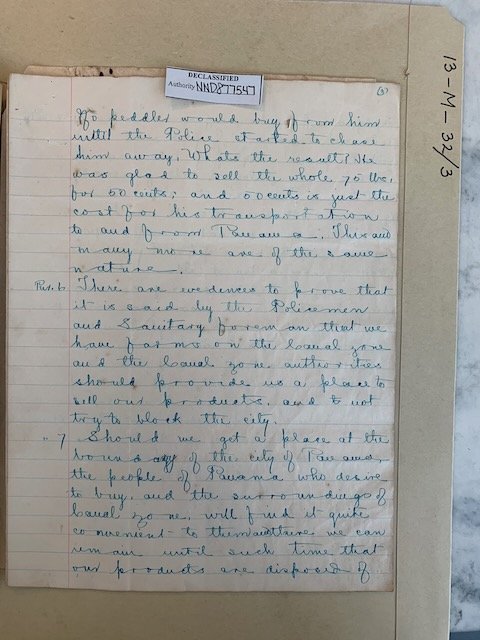 DECLASSIFIED
Authority NND877547
13-M-32/3
(3)
No peddler would buy from him
until the Police started to chase
him away. Whats the result? He
was glad to sell the whole 75 lbs.
for 50 cents; and 50 cents is just the
cost for his transportation
to and from Panama. This and
many more are of the same
nature.
Par. 6 There are evedences to prove that
it is said by the Policemen
and Sanitary foreman that we
have farms on the Canal zone
and the Canal zone authorities
should provide us a place to
sell our products, and to not
try to block the city.
" 7 Should we get a place at the
boundary of the city of Panama,
the people of Panama who desire
to buy, and the surroundings of
Canal zone, will find it quite
convenient to them and there we can
remain until such time that
our products are disposed of